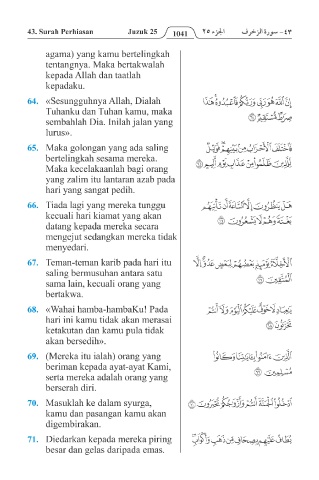 43. Surah Perhiasan Juzuk 25 1041 الجزء ٢٥ ٤٣ – سورة الزخرف
agama) yang kamu bertelingkah
tentangnya. Maka bertakwalah
kepada Allah dan taatlah
kepadaku.
64. «Sesungguhnya Allah, Dialah
Tuhanku dan Tuhan kamu, maka
sembahlah Dia. Inilah jalan yang
lurus».
65. Maka golongan yang ada saling
bertelingkah sesama mereka.
Maka kecelakaanlah bagi orang
yang zalim itu lantaran azab pada
hari yang sangat pedih.
66. Tiada lagi yang mereka tunggu
kecuali hari kiamat yang akan
datang kepada mereka secara
mengejut sedangkan mereka tidak
menyedari.
67. Teman-teman karib pada hari itu
saling bermusuhan antara satu
sama lain, kecuali orang yang
bertakwa.
68. «Wahai hamba-hambaKu! Pada
hari ini kamu tidak akan merasai
ketakutan dan kamu pula tidak
akan bersedih».
69. (Mereka itu ialah) orang yang
beriman kepada ayat-ayat Kami,
serta mereka adalah orang yang
berserah diri.
70. Masuklah ke dalam syurga,
kamu dan pasangan kamu akan
digembirakan.
71. Diedarkan kepada mereka piring
besar dan gelas daripada emas.
إِنَّ ٱللَّهَ هُوَ رَبِّي وَرَبُّكُمْ فَٱعْبُدُوهُ هَٰذَا
صِرَٰطٌ مُّسْتَقِيمٌ ٦٤
فَٱخْتَلَفَ ٱلْأَحْزَابُ مِنۢ بَيْنِهِمْ فَوَيْلٌ
لِّلَّذِينَ ظَلَمُوا۟ مِنْ عَذَابِ يَوْمٍ أَلِيمٍ ٦٥
هَلْ يَنظُرُونَ إِلَّا ٱلسَّاعَةَ أَن تَأْتِيَهُم
بَغْتَةً وَهُمْ لَا يَشْعُرُونَ ٦٦
ٱلْأَخِلَّآءُ يَوْمَئِذٍۭ بَعْضُهُمْ لِبَعْضٍ عَدُوٌّ إِلَّا
ٱلْمُتَّقِينَ ٦٧
يَٰعِبَادِ لَا خَوْفٌ عَلَيْكُمُ ٱلْيَوْمَ وَلَآ أَنتُمْ
تَحْزَنُونَ ٦٨
ٱلَّذِينَ ءَامَنُوا۟ بِـَٔايَٰتِنَا وَكَانُوا۟
مُسْلِمِينَ ٦٩
ٱدْخُلُوا۟ ٱلْجَنَّةَ أَنتُمْ وَأَزْوَٰجُكُمْ تُحْبَرُونَ ٧٠
يُطَافُ عَلَيْهِم بِصِحَافٍ مِّن ذَهَبٍ وَأَكْوَابٍ